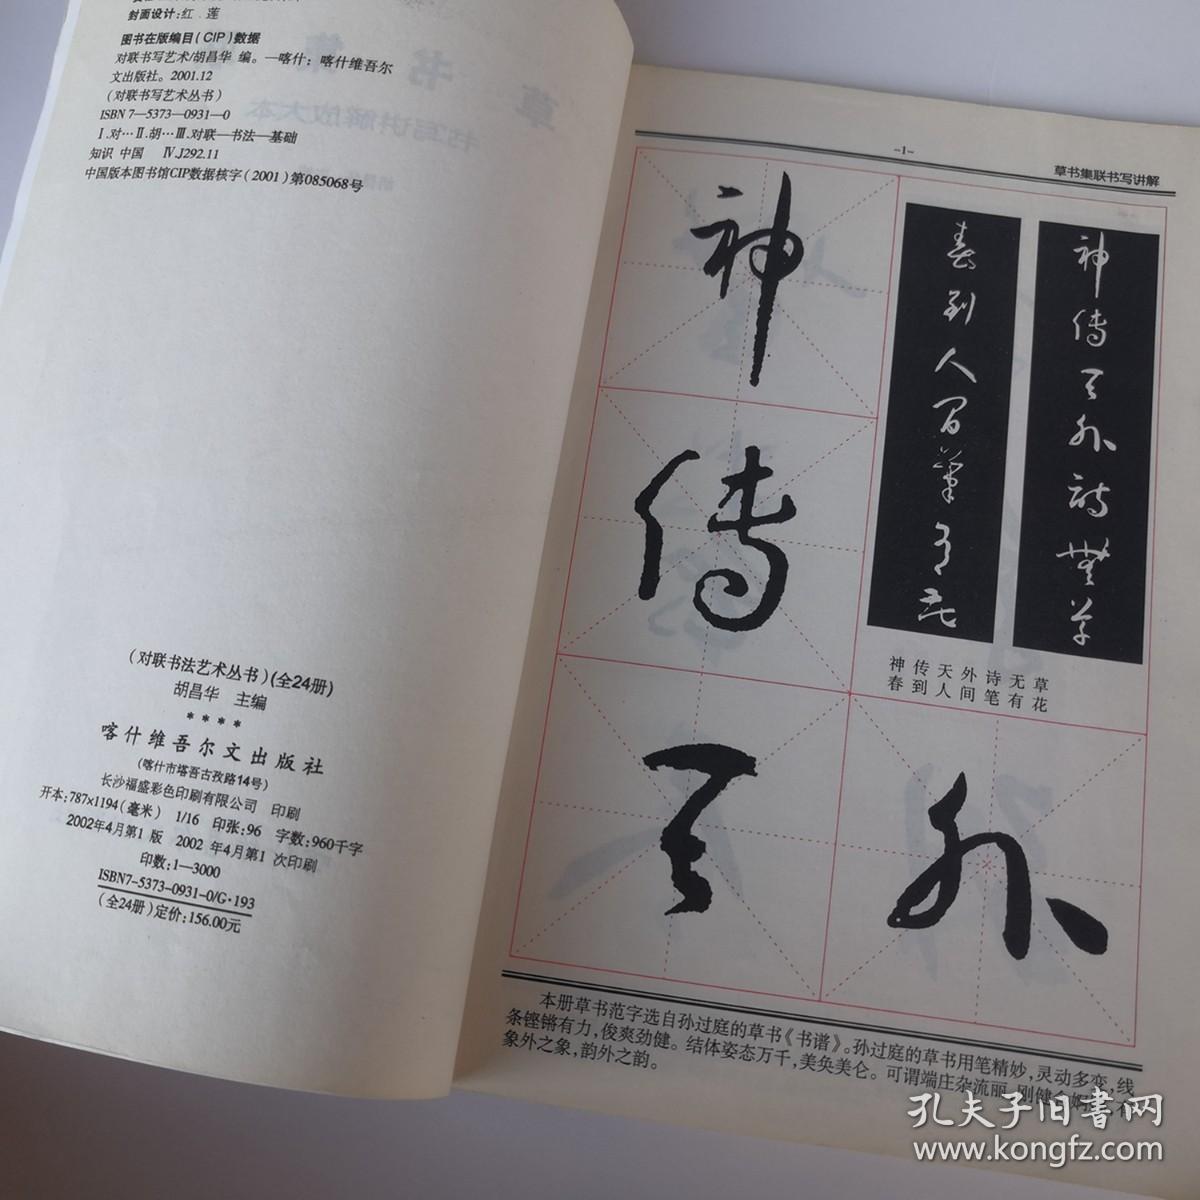 封面设计：红 莲
图书在版编目(CIP)数据
对联书写艺术/胡昌华 编。—喀什；喀什维吾尔
文出版社。2001.12
(对联书写艺术丛书)
ISBN 7—5373—0931—0
Ⅰ.对…Ⅱ.胡…Ⅲ.对联—书法—基础
知识 中国 Ⅳ.J292.11
中国版本图书馆CIP数据核字(2001)第085068号
(对联书法艺术丛书)(全24册)
胡昌华 主编
****
喀什维吾尔文出版社
(喀什市塔吾古孜路14号)
长沙福盛彩色印刷有限公司 印刷
开本:787×1194(毫米) 1/16 印张:96 字数:960千字
2002年4月第1版 2002年4月第1次印刷
印数:1—3000
ISBN7-5373-0931-0/G·193
(全24册)定价:156.00元
-1-
草书集联书写讲解
神
传
天
外
神传天外诗无草
春到人间笔有花
神传天外诗无草
春到人间笔有花
本册草书范字选自孙过庭的草书《书谱》。孙过庭的草书用笔精妙,灵动多变,线
条铿锵有力,俊爽劲健。结体姿态万千,美奂美仑。可谓端庄杂流丽,刚健含婀娜,有
象外之象,韵外之韵。
孔夫子旧书网
www.kongfz.com